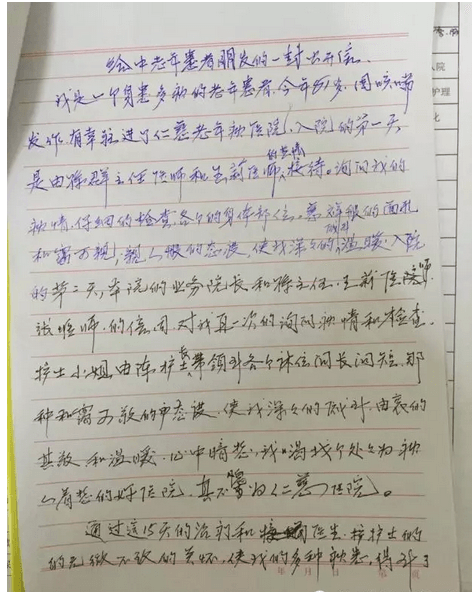 给中老年患者朋友的一封公开信.
我是一个身患多种的老年患者,今年81岁,因咳嗽
发作,有幸驻进了仁慈老年病医院,入院的第一天
是由徐群主任医师和王新医师的热情接待。询问我的
病情,仔细的检查各个的身体部位。慈祥般的面孔
和蔼可亲,亲人般的态度,使我深々的感到温暖,入院
的第二天,本院的业务院长和徐主任,王新医师.
张医师.的信周.对我再二次的询问病情和检查.
护士小姐由陈护士长带领到各个床位问长问短,那
种和蔼可敬的申态度,使我深々的感到,由衷的
其敬和温暖,心中暗想,我遇找个处々为病
人着想的好医院,真不愧为仁慈医院。
通过这15天的治疗和 医生.护护士的
的无微不致的关怀,使我的多种疾患,得到了
年 月 日